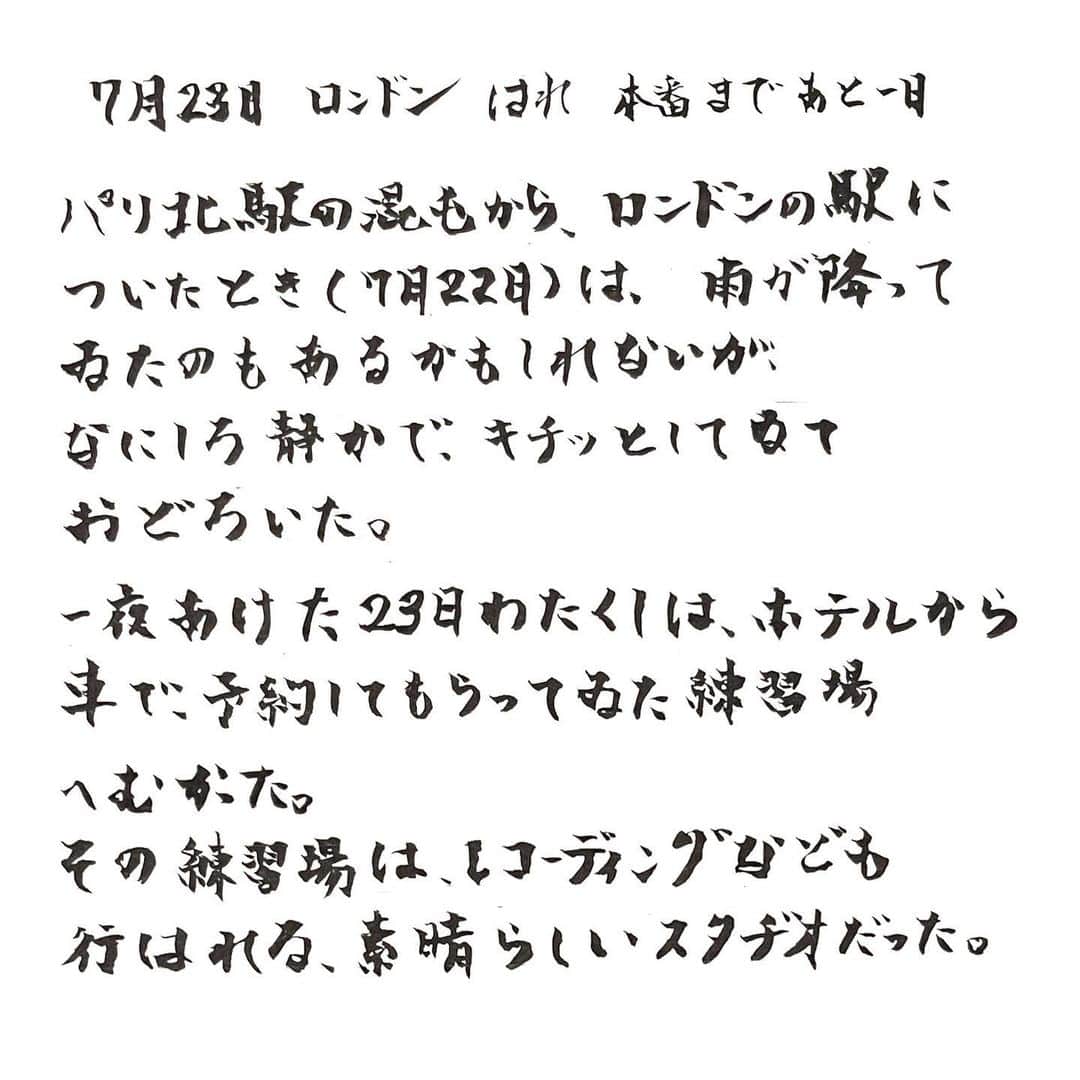 7月23日 ロンドン はれ 本番まであと一日
パリ北駅の混もから、ロンドンの駅に
ついたとき(7月22日)は、雨が降って
ゐたのもあるかもしれないが、
なにしろ静かで、キチッとして ゐて
おどろいた。
一夜あけた23日わたくしは、ホテルから
車で、予約してもらってゐた練習場
へむかった。
その練習場は、レコーディングなども
行はれる、素晴らしいスタヂオだった。